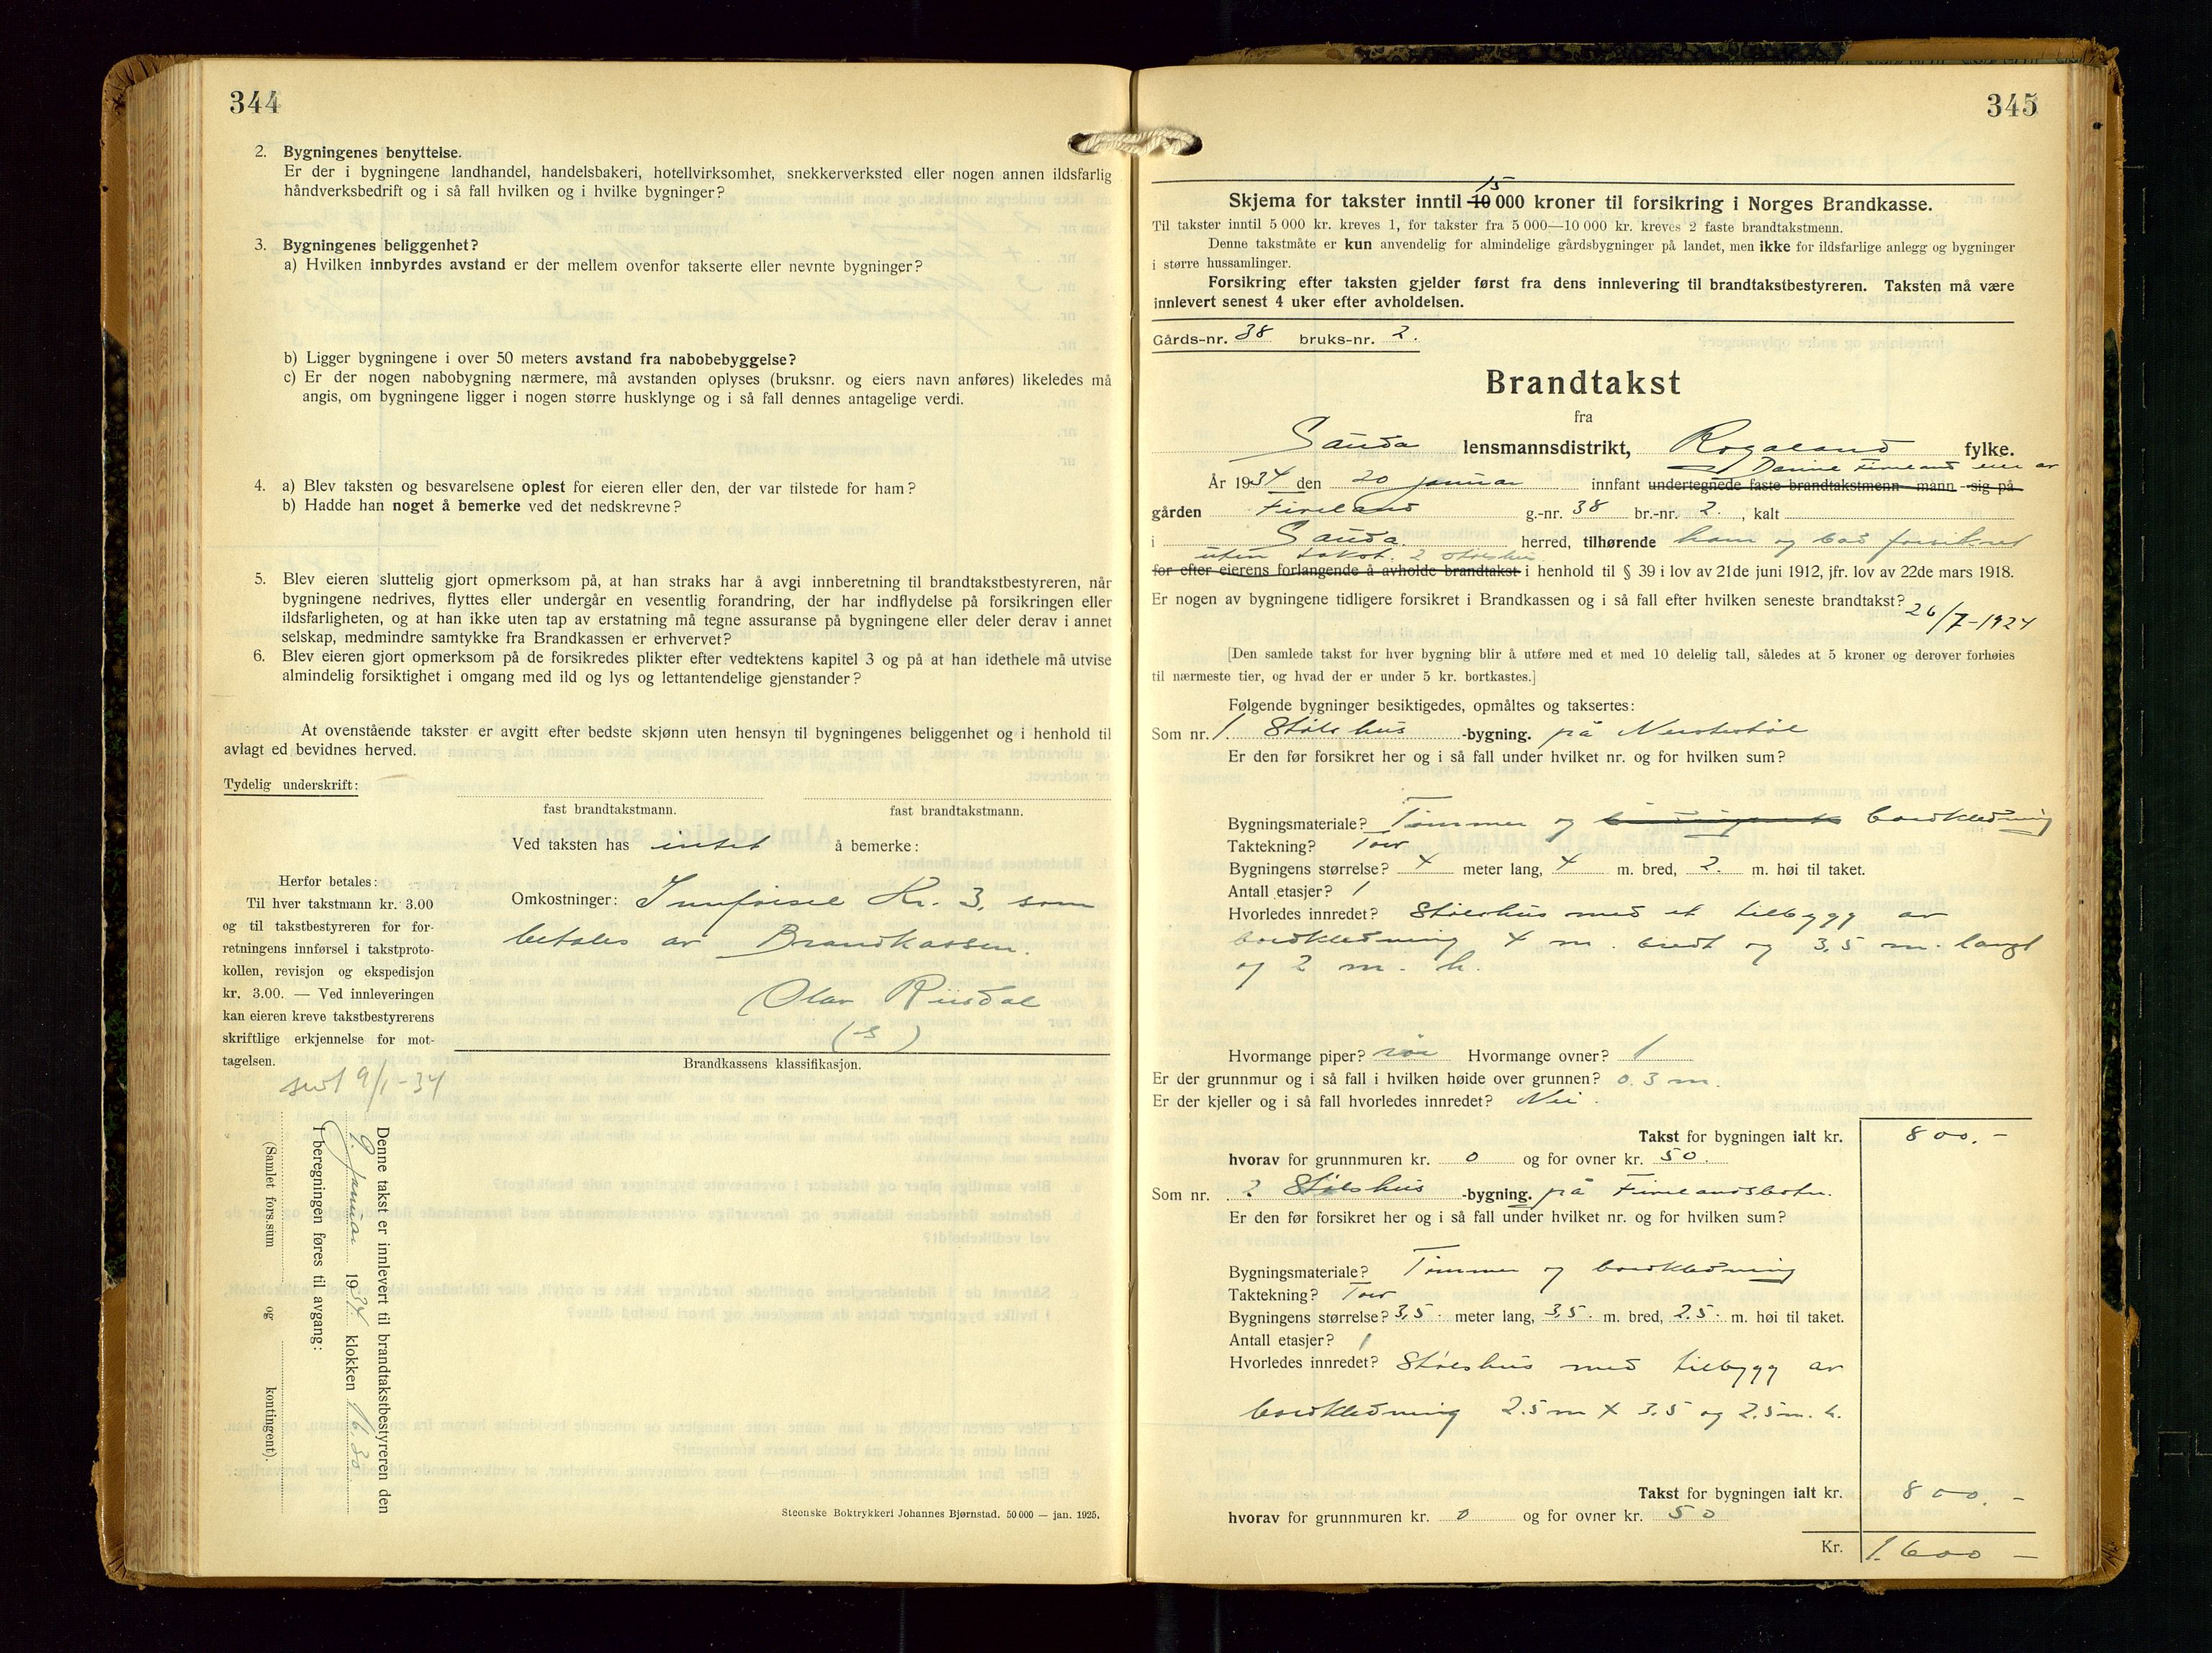 344
2. Bygningenes benyttelse.
Er der i bygningene landhandel, handelsbakeri, hotellvirksomhet, snekkerverksted eller nogen annen ildsfarlig
håndverksbedrift og i så fall hvilken og i hvilke bygninger?
3. Bygningenes beliggenhet?
a) Hvilken innbyrdes avstand er der mellem ovenfor takserte eller nevnte bygninger?
b) Ligger bygningene i over 50 meters avstand fra nabobebyggelse?
c) Er der nogen nabobygning nærmere, må avstanden oplyses (bruksnr. og eiers navn anføres) likeledes må
angis, om bygningene ligger i nogen større husklynge og i så fall dennes antagelige verdi.
4. a) Blev taksten og besvarelsene oplest for eieren eller den, der var tilstede for ham?
b) Hadde han noget å bemerke ved det nedskrevne?
5. Blev eieren sluttelig gjort opmerksom på, at han straks har å avgi innberetning til brandtakstbestyreren, når
bygningene nedrives, flyttes eller undergår en vesentlig forandring, der har indflydelse på forsikringen eller
ildsfarligheten, og at han ikke uten tap av erstatning må tegne assuranse på bygningene eller deler derav i annet
selskap, medmindre samtykke fra Brandkassen er erhvervet?
6. Blev eieren gjort opmerksom på de forsikredes plikter efter vedtektens kapitel 3 og på at han idethele må utvise
almindelig forsiktighet i omgang med ild og lys og lettantendelige gjenstander?
At ovenstående takster er avgitt efter bedste skjønn uten hensyn til bygningenes beliggenhet og i henhold til
avlagt ed bevidnes herved.
Tydelig underskrift:
fast brandtakstmann. fast brandtakstmann.
Ved taksten has intet å bemerke:
Herfor betales:
Til hver takstmann kr. 3.00
og til takstbestyreren for for-
retningens innførsel i takstproto-
kollen, revisjon og ekspedisjon
kr. 3.00. — Ved innleveringen
kan eieren kreve takstbestyrerens
skriftlige erkjennelse for mot-
tagelsen.
Omkostninger: Innførsel Kr. 3, som
betales av Brandkassen.
Olav Riisdal
(s)
Brandkassens klassifikasjon.
9/1-34
Denne takst er innlevert til brandtakstbestyreren den
9. januar 1934 klokken 16.30
I beregningen føres til avgang:
(Samlet fors.sum og kontingent).
Steenske Boktrykkeri Johannes Bjørnstad. 50 000 — jan. 1925.
345
15
Skjema for takster inntil 10 000 kroner til forsikring i Norges Brandkasse.
Til takster inntil 5 000 kr. kreves 1, for takster fra 5 000—10 000 kr. kreves 2 faste brandtakstmenn.
Denne takstmåte er kun anvendelig for almindelige gårdsbygninger på landet, men ikke for ildsfarlige anlegg og bygninger
i større hussamlinger.
Forsikring efter taksten gjelder først fra dens innlevering til brandtakstbestyreren. Taksten må være
innlevert senest 4 uker efter avholdelsen.
Gårds-nr. 38 bruks-nr. 2.
Brandtakst
fra
Sauda lensmannsdistrikt, Rogaland fylke.
eier av
År 1934 den 20 januar innfant undertegnede faste brandtakstmenn mann sig på
gården Fiveland g.-nr. 38 br.-nr. 2. , kalt
i Sauda. herred, tilhørende ham og bad forsikret
uten takst. 2 stølshus
for efter eierens forlangende å avholde brandtakst i henhold til § 39 i lov av 21de juni 1912, jfr. lov av 22de mars 1918.
Er nogen av bygningene tidligere forsikret i Brandkassen og i så fall efter hvilken seneste brandtakst?
26/7-1924
[Den samlede takst for hver bygning blir å utføre med et med 10 delelig tall, således at 5 kroner og derover forhøies
til nærmeste tier, og hvad der er under 5 kr. bortkastes.]
Følgende bygninger besiktigedes, opmåltes og taksertes:
Som nr. 1. Stølshus -bygning. på
Er den før forsikret her og i så fall under hvilket nr. og for hvilken sum?
Bygningsmateriale? Tømmer og bordkledning
Taktekning? Torv
Bygningens størrelse? 4 meter lang, 4 m. bred, 2. m. høi til taket.
Antall etasjer? 1
Hvorledes innredet? Stølshus med et tilbygg av
bordkledning 4 m. bredt og 3,5 m. langt
og 2 m. h.
Hvormange piper? rør Hvormange ovner? 1
Er der grunnmur og i så fall i hvilken høide over grunnen? 0.3 m.
Er der kjeller og i så fall hvorledes innredet? Nei.
Takst for bygningen ialt kr. 800.-
hvorav for grunnmuren kr. 0 og for ovner kr. 50.
Som nr. 2 Stølshus -bygning. på Fivelandsbotn.
Er den før forsikret her og i så fall under hvilket nr. og for hvilken sum?
Bygningsmateriale? Tømmer og bordkledning
Taktekning? Torv
Bygningens størrelse? 3,5 meter lang, 3,5. m. bred, 2.5. m. høi til taket.
Antall etasjer? 1
Hvorledes innredet? Stølshus med tilbygg av
bordkledning 2.5 m x 3.5 og 2.5 m. h.
Takst for bygningen ialt kr. 800.-
hvorav for grunnmuren kr. 0 og for ovner kr. 50
Kr. 1.600 -